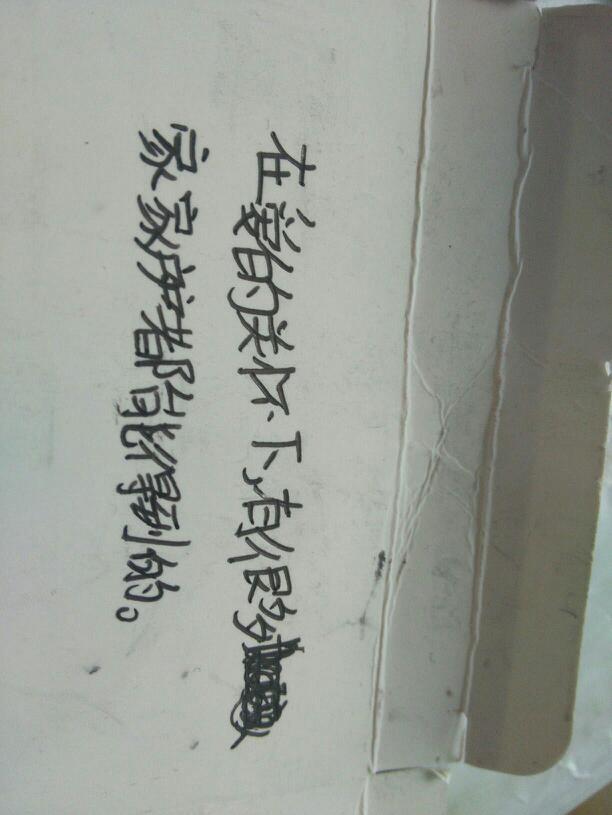 在爱的关怀下,有很多
家家户户都能得到的。